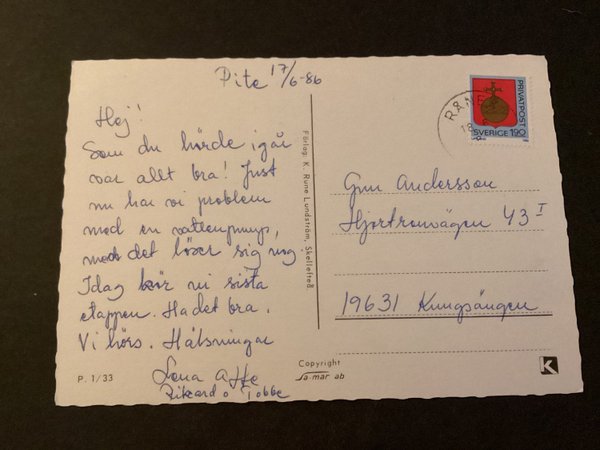 Pite 17/6-86
Hej!
Som du hörde igår
var allt bra! Just
nu har vi problem
med en vattenpump,
med det löser sig nog
Idag kör vi sista
etappen. Ha det bra.
Vi hörs. Hälsningar
Lena Affe
Rikard o Tobbe
P. 1/33
Förlag: K. Rune Lundström, Skellefteå
Copyright
sa-mar ab
RÅNE
18
PRIVATPOST
SVERIGE 190
Gun Andersson
Hjortronvägen 43 I
19631 Kungsängen
K